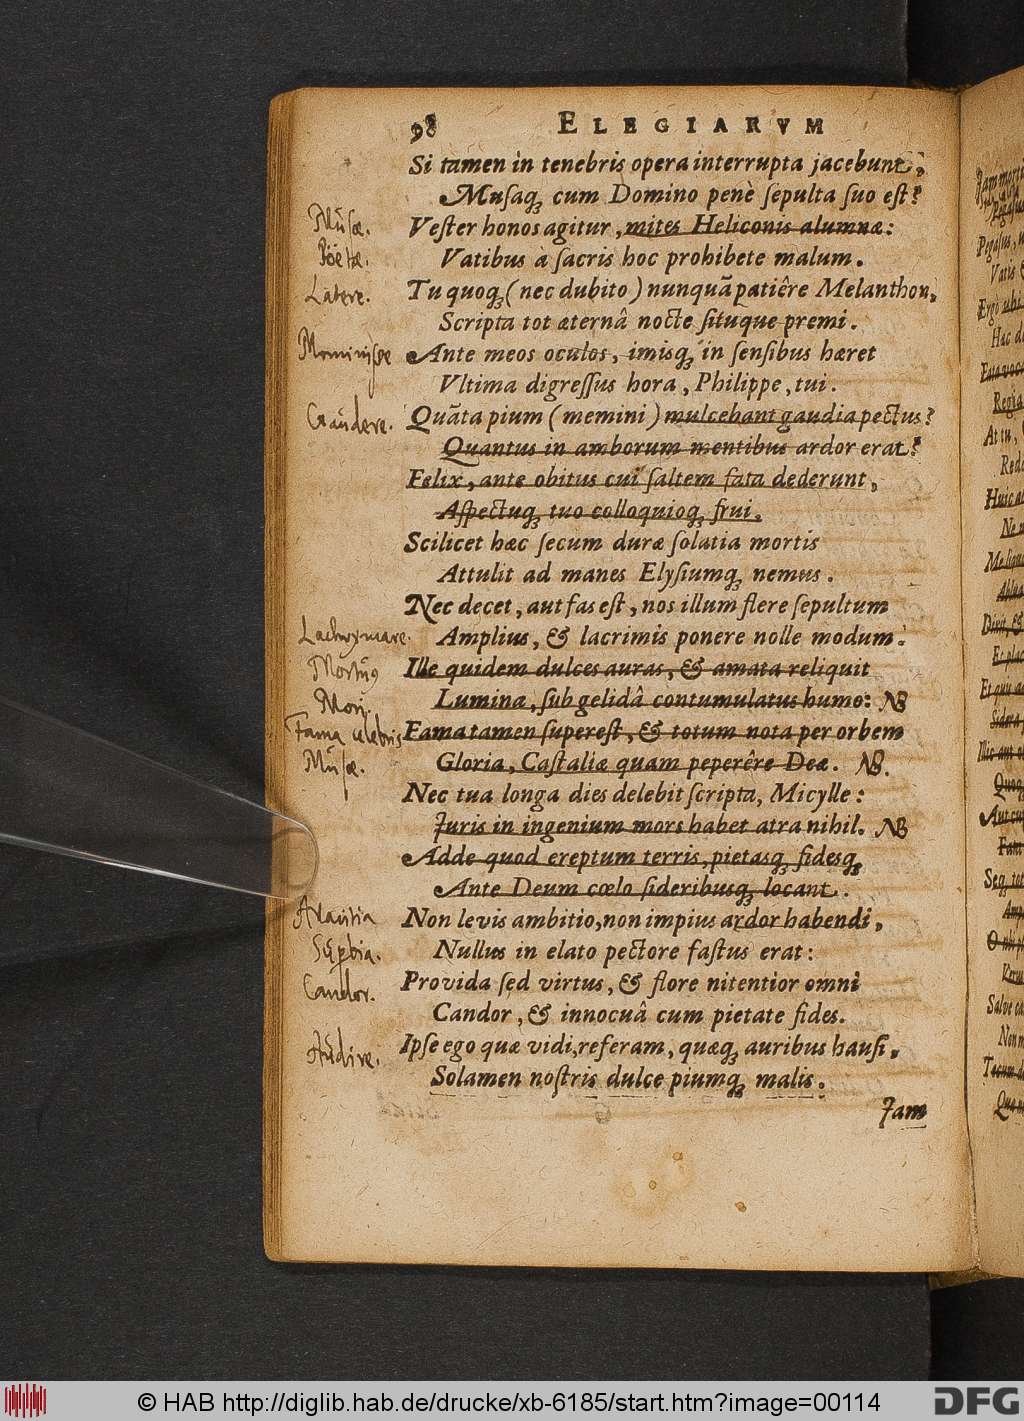 98 ELEGIARVM
Si tamen in tenebris opera interrupta jacebunt,
Musaq́; cum Domino penè ſepulta ſuo eſt?
Muſæ.
Veſter honos agitur, mites Heliconis alumnæ:
Poëtæ.
Vatibus à ſacris hoc prohibete malum.
Latere.
Tu quoq́; (nec dubito) nunquā patiêre Melanthon,
Scripta tot æternâ nocte ſituque premi.
Ante meos oculos, imisq́; in ſenſibus hæret
Vltima digreſſus hora, Philippe, tui.
Gaudere.
Quāta pium (memini) mulcebant gaudia pectus?
Quantus in amborum mentibus ardor erat?
Felix, ante obitus cui ſaltem fata dederunt,
Aſpectuq́; tuo colloquioq́; frui.
Scilicet hæc ſecum duræ ſolatia mortis
Attulit ad manes Elyſiumq́; nemus.
Nec decet, aut fas eſt, nos illum flere ſepultum
Lachrymare.
Amplius, & lacrimis ponere nolle modum.
Mortuus
Ille quidem dulces auras, & amata reliquit
Mori.
Lumina, ſub gelidâ contumulatus humo: NB
Fama celebris
Fama tamen ſupereſt, & totum nota per orbem
Muſæ.
Gloria, Caſtaliæ quam peperêre Deæ. NB.
Nec tua longa dies delebit ſcripta, Micylle:
Juris in ingenium mors habet atra nihil. NB
Adde quod ereptum terris, pietasq́; fidesq́;
Ante Deum cœlo ſideribusq́; locant.
Avaritia
Non levis ambitio, non impius ardor habendi,
Supbia.
Nullus in elato pectore faſtus erat:
Candor.
Provida ſed virtus, & flore nitentior omni
Candor, & innocuâ cum pietate fides.
Audire.
Ipſe ego quæ vidi, referam, quæq́; auribus hauſi,
Solamen noſtris dulce piumq́; malis.
Jam
© HAB http://diglib.hab.de/drucke/xb-6185/start.htm?image=00114
DFG